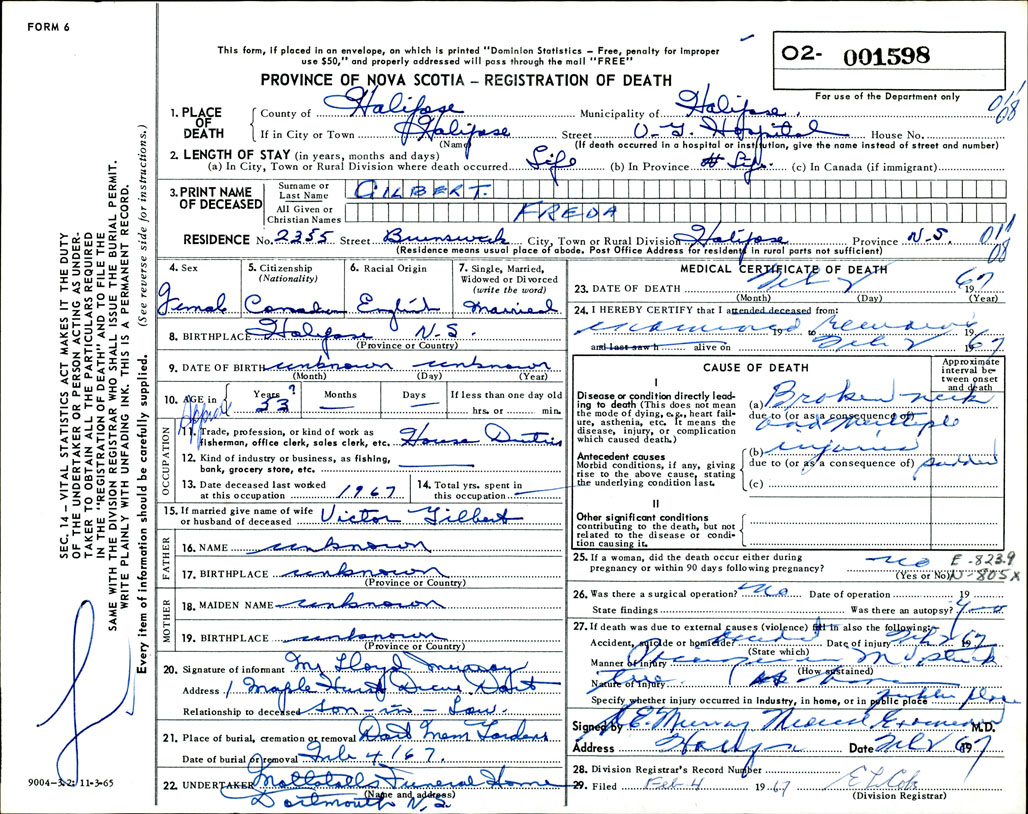 FORM 6
This form, if placed in an envelope, on which is printed "Dominion Statistics – Free, penalty for improper
use $50," and properly addressed will pass through the mail "FREE"
PROVINCE OF NOVA SCOTIA – REGISTRATION OF DEATH
O2- 001598
For use of the Department only
SEC. 14 – VITAL STATISTICS ACT MAKES IT THE DUTY
OF THE UNDERTAKER OR PERSON ACTING AS UNDER-
TAKER TO OBTAIN ALL THE PARTICULARS REQUIRED
IN THE "REGISTRATION OF DEATH" AND TO FILE THE
SAME WITH THE DIVISION REGISTRAR WHO SHALL ISSUE THE BURIAL PERMIT.
WRITE PLAINLY WITH UNFADING INK. THIS IS A PERMANENT RECORD.
Every item of information should be carefully supplied. (See reverse side for instructions.)
1. PLACE OF DEATH
County of Halifax Municipality of Halifax
If in City or Town Halifax Street V. G. Hospital House No.
(Name) (If death occurred in a hospital or institution, give the name instead of street and number)
011
08
2. LENGTH OF STAY (in years, months and days)
(a) In City, Town or Rural Division where death occurred Life (b) In Province Life (c) In Canada (if immigrant)
3. PRINT NAME OF DECEASED
Surname or Last Name GILBERT.
All Given or Christian Names FREDA
RESIDENCE No. 2355 Street Brunswick City, Town or Rural Division Halifax Province N.S.
(Residence means usual place of abode. Post Office Address for residents in rural parts not sufficient)
011
08
4. Sex Female
5. Citizenship (Nationality) Canadian
6. Racial Origin English
7. Single, Married, Widowed or Divorced (write the word) Married
8. BIRTHPLACE Halifax N.S.
(Province or Country)
9. DATE OF BIRTH unknown unknown
(Month) (Day) (Year)
10. AGE in Years 53 ? Months Days If less than one day old hrs. or min.
OCCUPATION
11. Trade, profession, or kind of work as fisherman, office clerk, sales clerk, etc. House Duties
12. Kind of industry or business, as fishing, bank, grocery store, etc.
13. Date deceased last worked at this occupation 1967
14. Total yrs. spent in this occupation
15. If married give name of wife or husband of deceased Victor Gilbert
FATHER
16. NAME unknown
17. BIRTHPLACE unknown
(Province or Country)
MOTHER
18. MAIDEN NAME unknown
19. BIRTHPLACE unknown
(Province or Country)
20. Signature of informant Mr Lloyd Murray
Address 1 Maple Hurst Drive Dart
Relationship to deceased son-in-Law.
21. Place of burial, cremation or removal Dart Mem Gardens
Date of burial or removal Feb 4/67.
22. UNDERTAKER Mattatall's Funeral Home
(Name and address)
Dartmouth N.S.
9004-3.2: 11-3-65
MEDICAL CERTIFICATE OF DEATH
23. DATE OF DEATH Feb 2 1967
(Month) (Day) (Year)
24. I HEREBY CERTIFY that I attended deceased from:
examined 19 to remains
and last saw h alive on Feb 2 1967
CAUSE OF DEATH
Approximate interval between onset and death
I
Disease or condition directly lead-
ing to death (This does not mean
the mode of dying, e.g., heart fail-
ure, asthenia, etc. It means the
disease, injury, or complication
which caused death.)
(a) Broken neck
due to (or as a consequence of)
and multiple
Antecedent causes
Morbid conditions, if any, giving
rise to the above cause, stating
the underlying condition last.
(b) injuries
due to (or as a consequence of) sudden
(c)
II
Other significant conditions
contributing to the death, but not
related to the disease or condi-
tion causing it.
25. If a woman, did the death occur either during pregnancy or within 90 days following pregnancy? no
(Yes or No)
E-823.9
N-805X
26. Was there a surgical operation? No Date of operation 19
State findings Was there an autopsy? yes
27. If death was due to external causes (violence) fill in also the following:
Accident, suicide or homicide? Accident Date of injury Feb 2 1967
(State which)
Manner of injury
(How sustained)
Nature of Injury
Specify whether injury occurred in Industry, in home, or in public place public place
Signed by E. Murray Medical Examiner M.D.
Address Halifax Date Feb 2 1967
28. Division Registrar's Record Number
29. Filed Feb 4 1967
(Division Registrar)